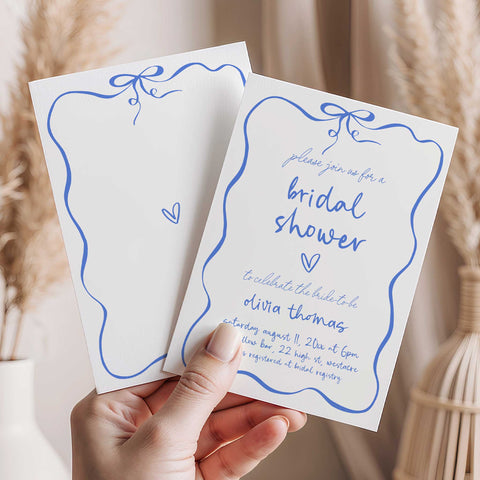 please join us for a
bridal
shower
to celebrate the bride to be
olivia thomas
saturday august 11, 20xx at 6pm
low bar, 22 high st, westacre
s registered at bridal registry